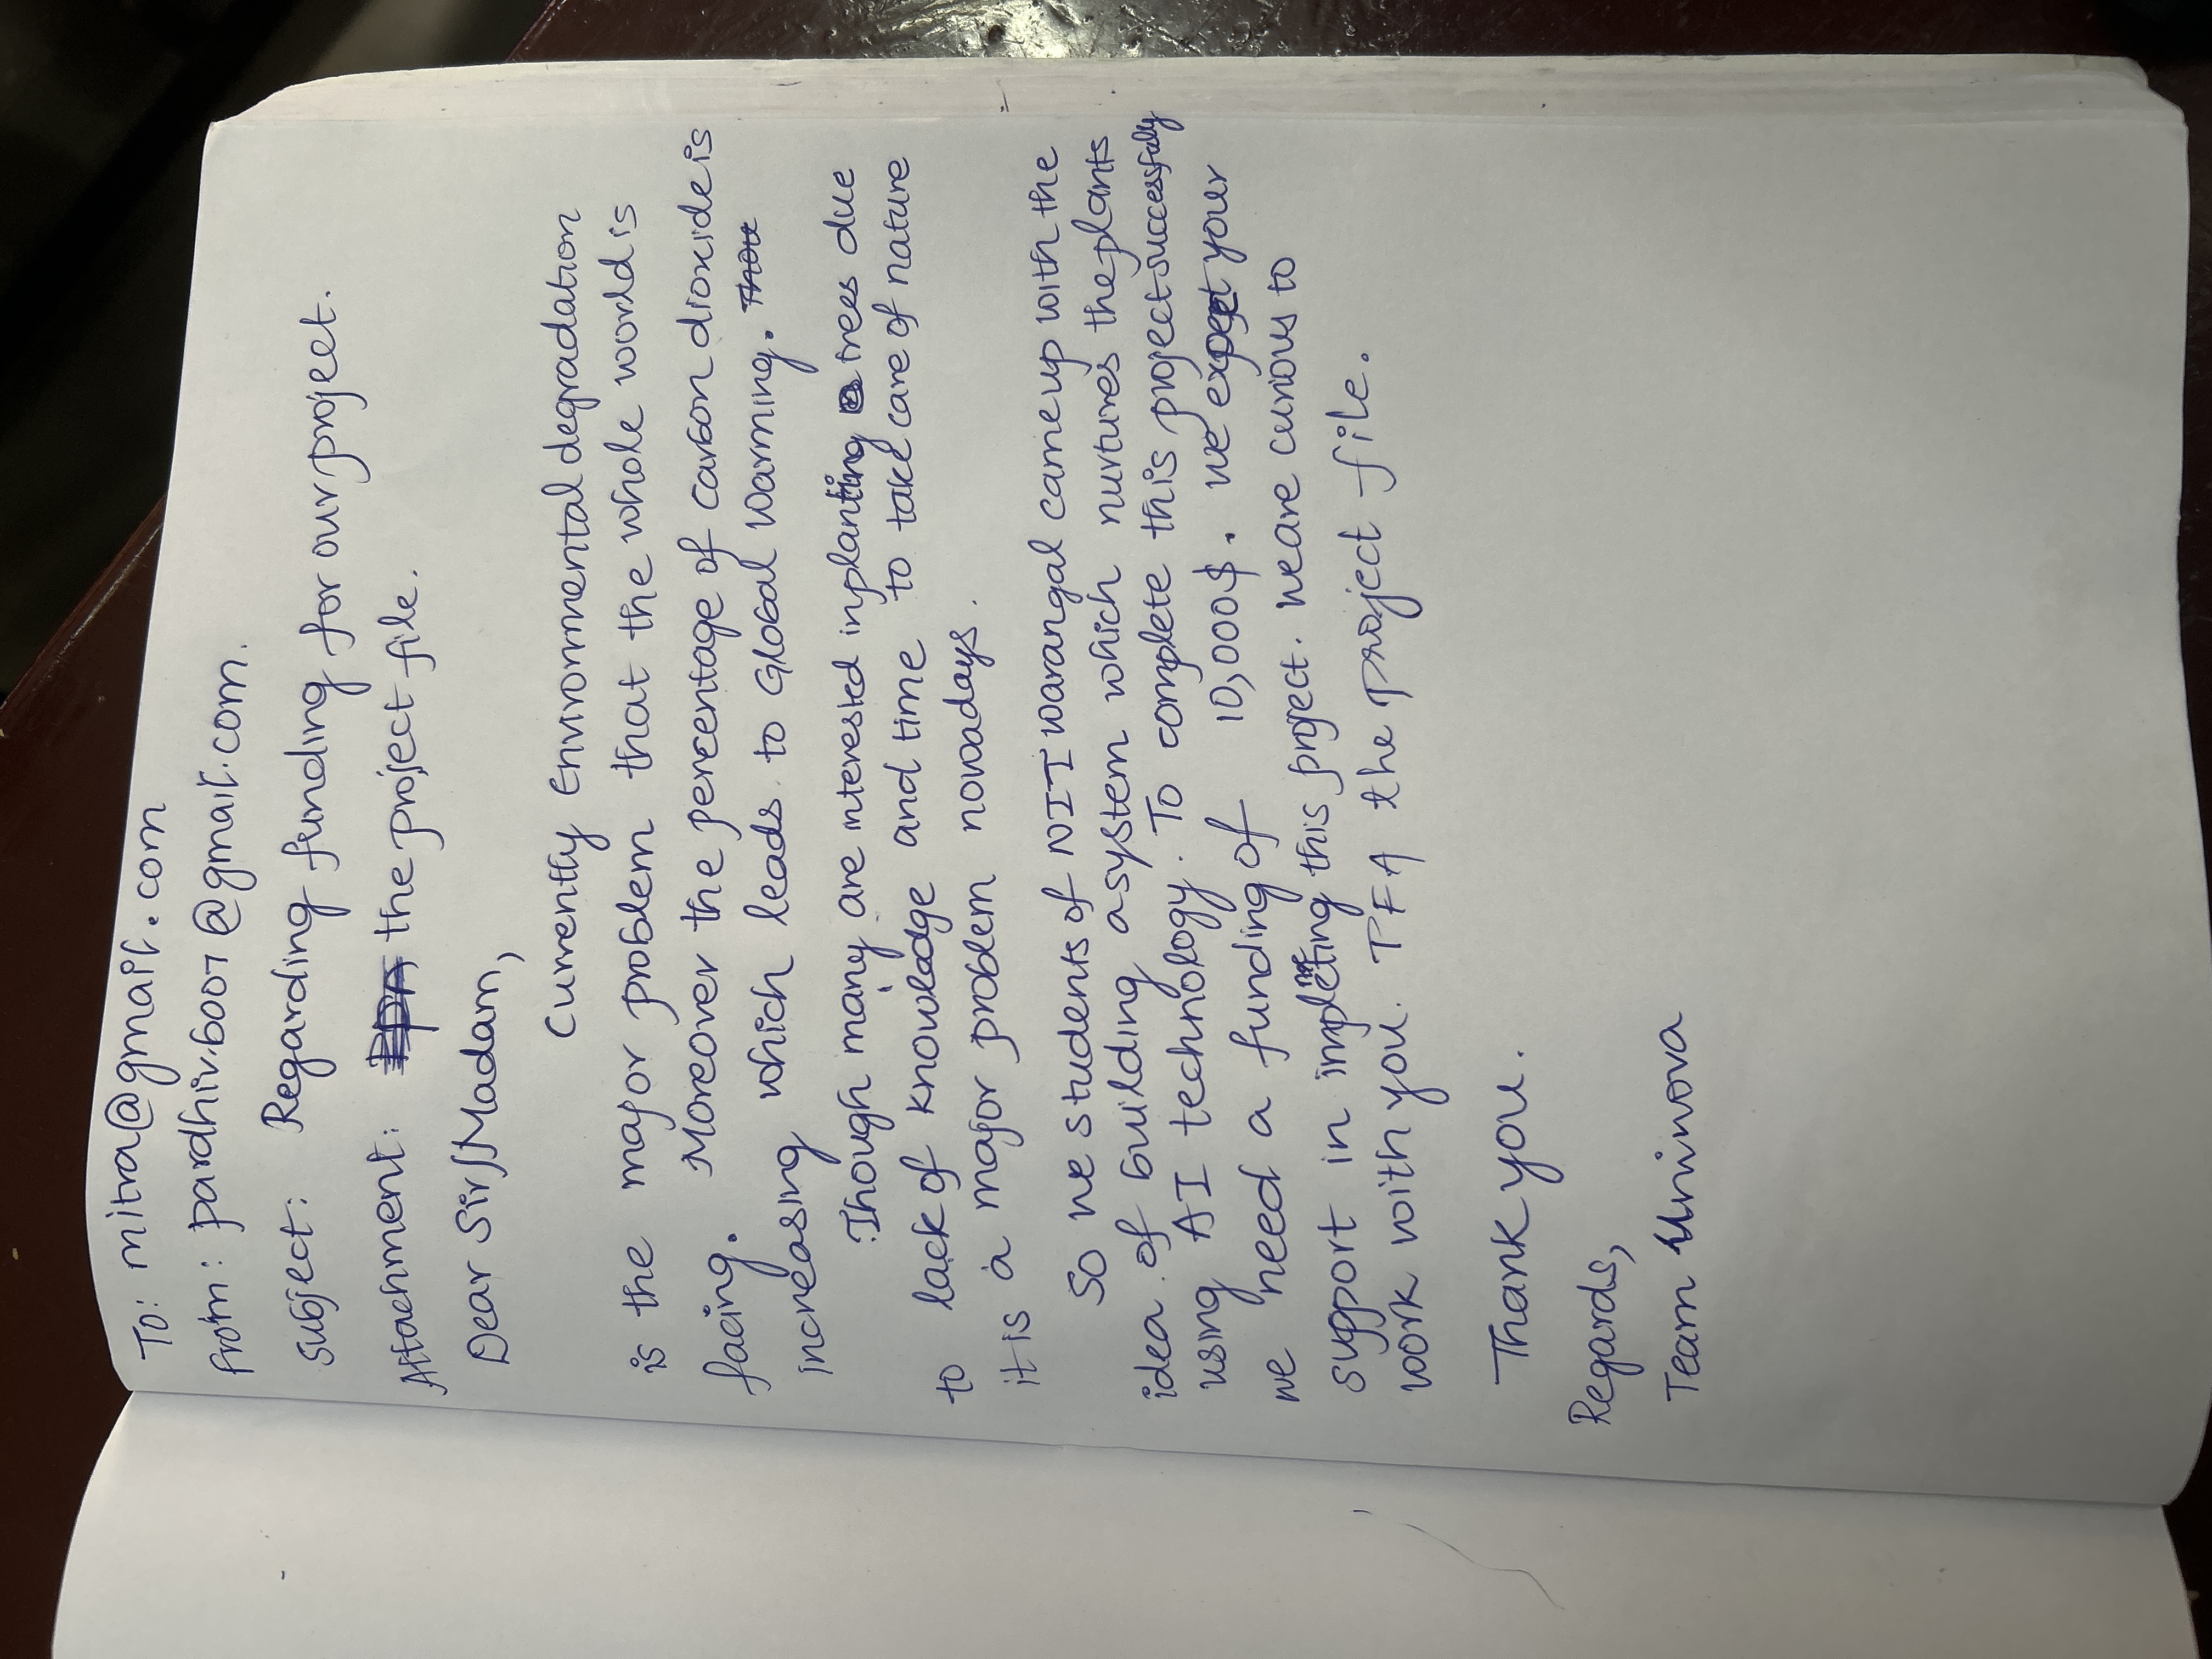 To: mitra@gmail.com
From: pardhiv.6007@gmail.com.
Subject: Regarding funding for our project.
Attachment: the project file.
Dear Sir/Madam,
Currently Environmental degradation
is the major problem that the whole world is
facing. Moreover the percentage of carbon dioxide is
increasing which leads to Global Warming.
Though many are interested in planting trees due
to lack of knowledge and time to take care of nature
it is a major problem nowadays.
So we students of NIT Warangal came up with the
idea of building a system which nurtures the plants
using AI technology. To complete this project successfuly
we need a funding of 10,000$. we expect your
support in this project. we are curious to
work with you. PFA the project file.
Thank you.
Regards,
Team Uninova